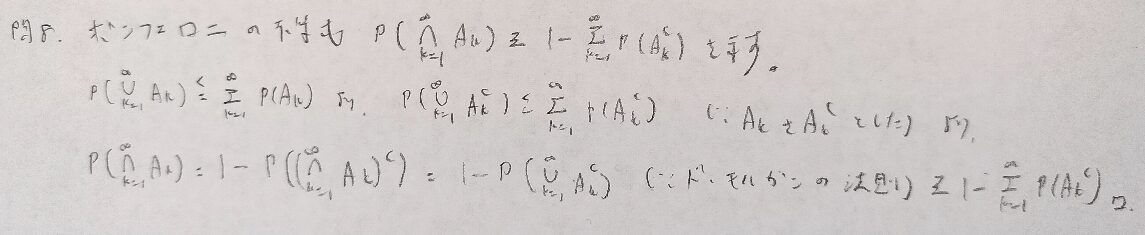 問8. ボンフェロニの不等式 P(∩_{k=1}^{∞} A_k) ≧ 1 - Σ_{k=1}^{∞} P(A_k^c) を示す。
P(∪_{k=1}^{∞} A_k) ≦ Σ_{k=1}^{∞} P(A_k) より、P(∪_{k=1}^{∞} A_k^c) ≦ Σ_{k=1}^{∞} P(A_k^c) (∵ A_k を A_k^c とした) より、
P(∩_{k=1}^{∞} A_k) = 1 - P((∩_{k=1}^{∞} A_k)^c) = 1 - P(∪_{k=1}^{∞} A_k^c) (∵ ド・モルガンの法則) ≧ 1 - Σ_{k=1}^{∞} P(A_k^c) □.